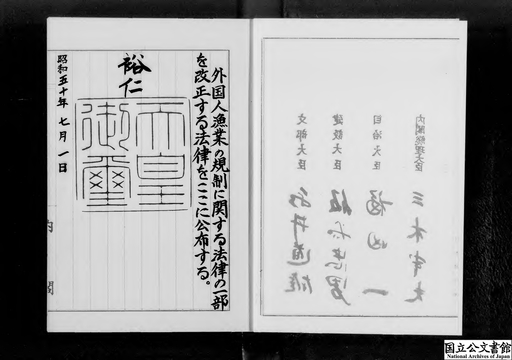 外国人漁業の規制に関する法律の一部
を改正する法律をここに公布する。
裕仁
天皇
御璽
昭和五十年七月一日
内閣
内閣総理大臣 三木武夫
自治大臣 福田一
建設大臣 仮谷忠男
文部大臣 永井道雄
国立公文書館
National Archives of Japan